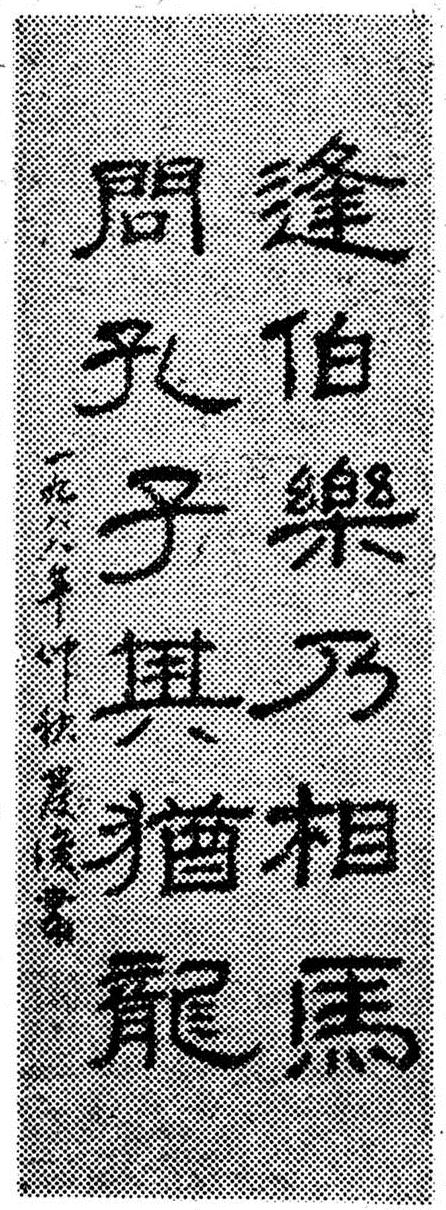 逢伯樂乃相馬
問孔子其猶龍
一九八八年仲秋 書